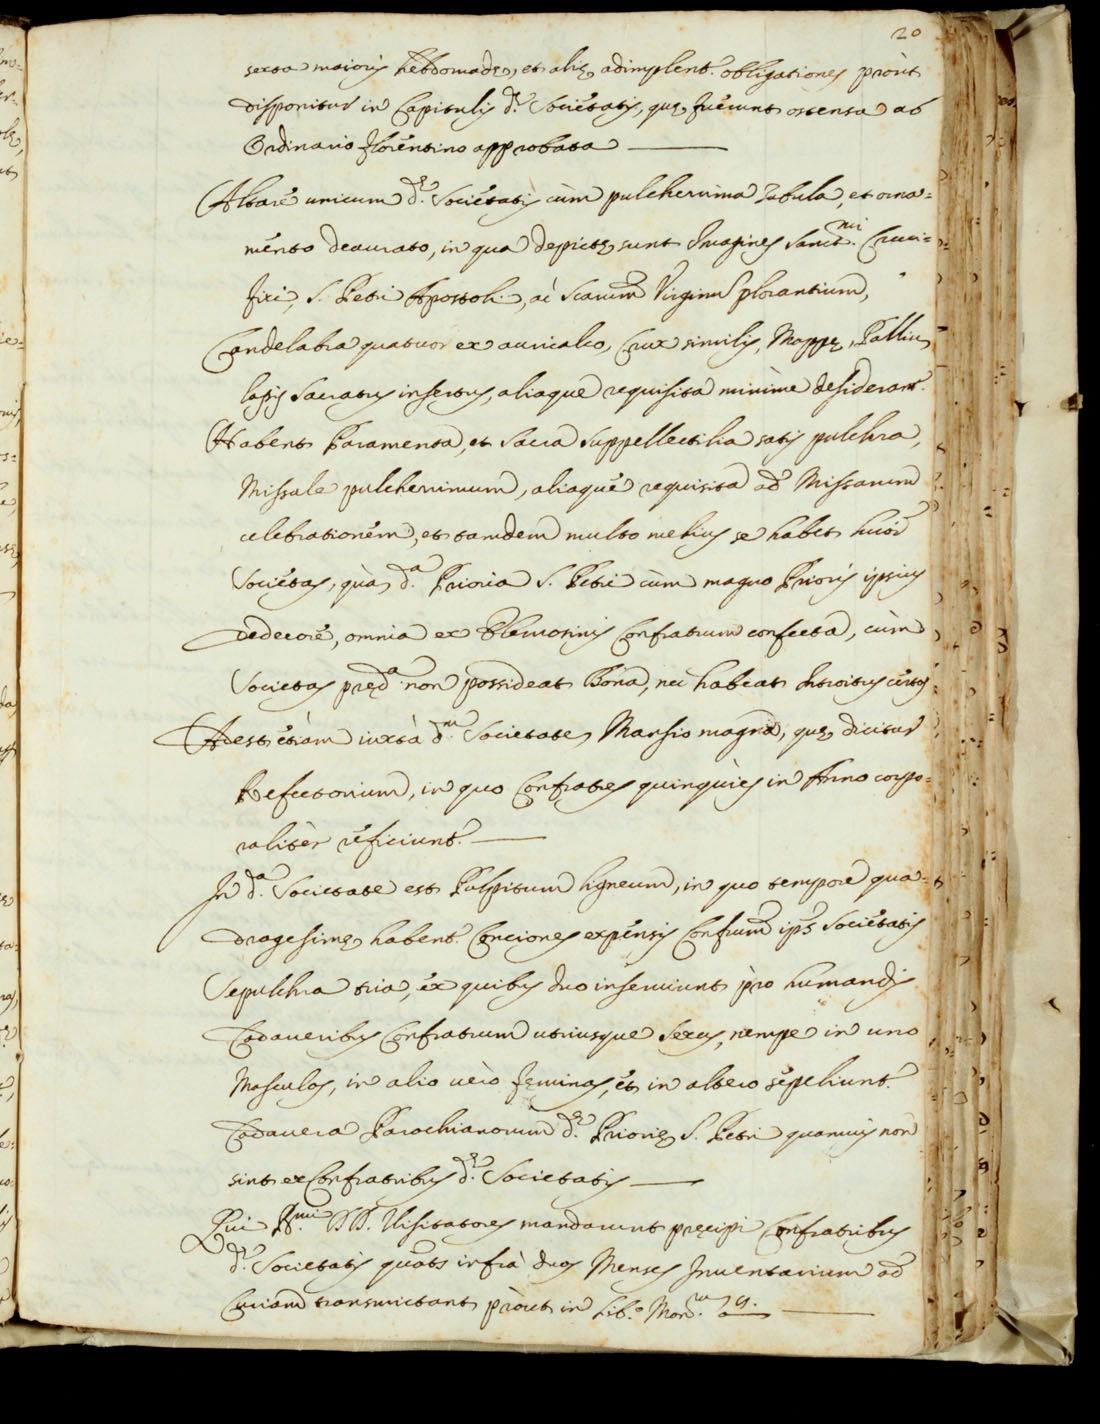 20
sexta maioris hebdomadę, et alię adimplent.ʳ obligationes proùt
disponitur in Capitulis d.ę Societatis, quę fuerunt ostensa ab
Ordinario florentino approbata
Altare unicum d.ę Societatis cùm pulcherrima Tabula, et orna=
mento deaurato, in qua depictę sunt Imagines Sanct.mi Cruci=
fixi, S. Petri Apostoli, ac Sanctarum Virginum plorantium,
Candelabra quatuor ex auricalco, Crux similis, Mappę, Pallium
lapis Sacratus insertus, aliaque requisita minime desiderant.r
Habent Paramenta, et Sacra Suppellectilia satis pulchra,
Missale pulcherrimum, aliaque requisita ad Missarum
celebrationem, et tamdem multo melius se habet huiusmodi
Societas, quàm d.a Prioria S. Petri cùm magno Prioris ipsius
dedecore, omnia ex Elemosinis Confratrum confecta, cùm
Societas pręd.a non possideat Bona, nec habeat Introitus certos
Adest etiàm iuxtà d.m Societatem Mansio magna, quę dicitur
Refectorium, in quo Confratres quinquies in Anno corpo=
ralitèr reficiunt.r
In d.a Societate est Pulpitum ligneum, in quo tempore qua=
dragesimę habent.r Conciones expensis Confrum ipsius Societatis
Sepulchra tria, ex quibus duo inserviunt pro humandis
Cadaveribus Confratrum utriusque Sexus, nempe in uno
Masculos, in alio verò fęminas, et in altero sepeliunt.r
Cadavera Parochianorum d.ę Priorię S. Petri quamvis non
sint ex Confratribus d.ę Societatis
Qui Ill.mi DD. Visitatores mandarunt pręcipi Confratribus
d.ę Societatis quatenus infrà duos Menses Inventarium ad
Curiam transmictant proùt in Lib.o